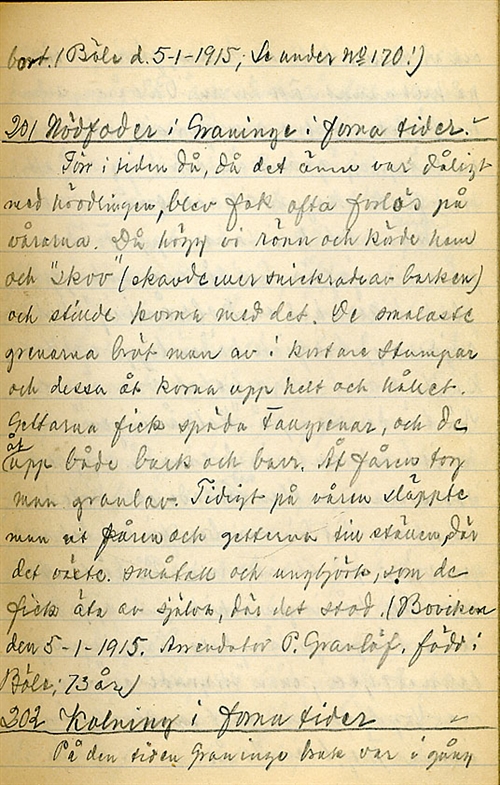 bort. (Böle d. 5-1-1915; Se under No 170!)
201 Nödfoder i Graninge i forna tider. "
Förr i tiden då, då det ännu var dåligt
med höodlingen, blev fok ofta forlös på
vårarna. Då högg vi rönn och körde hem
och "skov" (skavde eller snickrade av barken)
och stödde korna med det. De smalaste
grenarna bröt man av i kortare stumpar
och dessa åt korna upp helt och hållet.
Gettarna fick späda tallgrenar, och de
åt
upp både bark och barr. Åt fåren tog
man granlav. Tidigt på våren släppte
man ut fåren och getterna till ställen, där
det växte småtall och ungbjörk, som de
fick äta av själva, där det stod. (Boviken
den 5-1-1915. Arrendator P. Granlöf, född i
Böle; 73 år,)
202 Kolning i forna tider "
På den tiden Graninge bruk var i gång